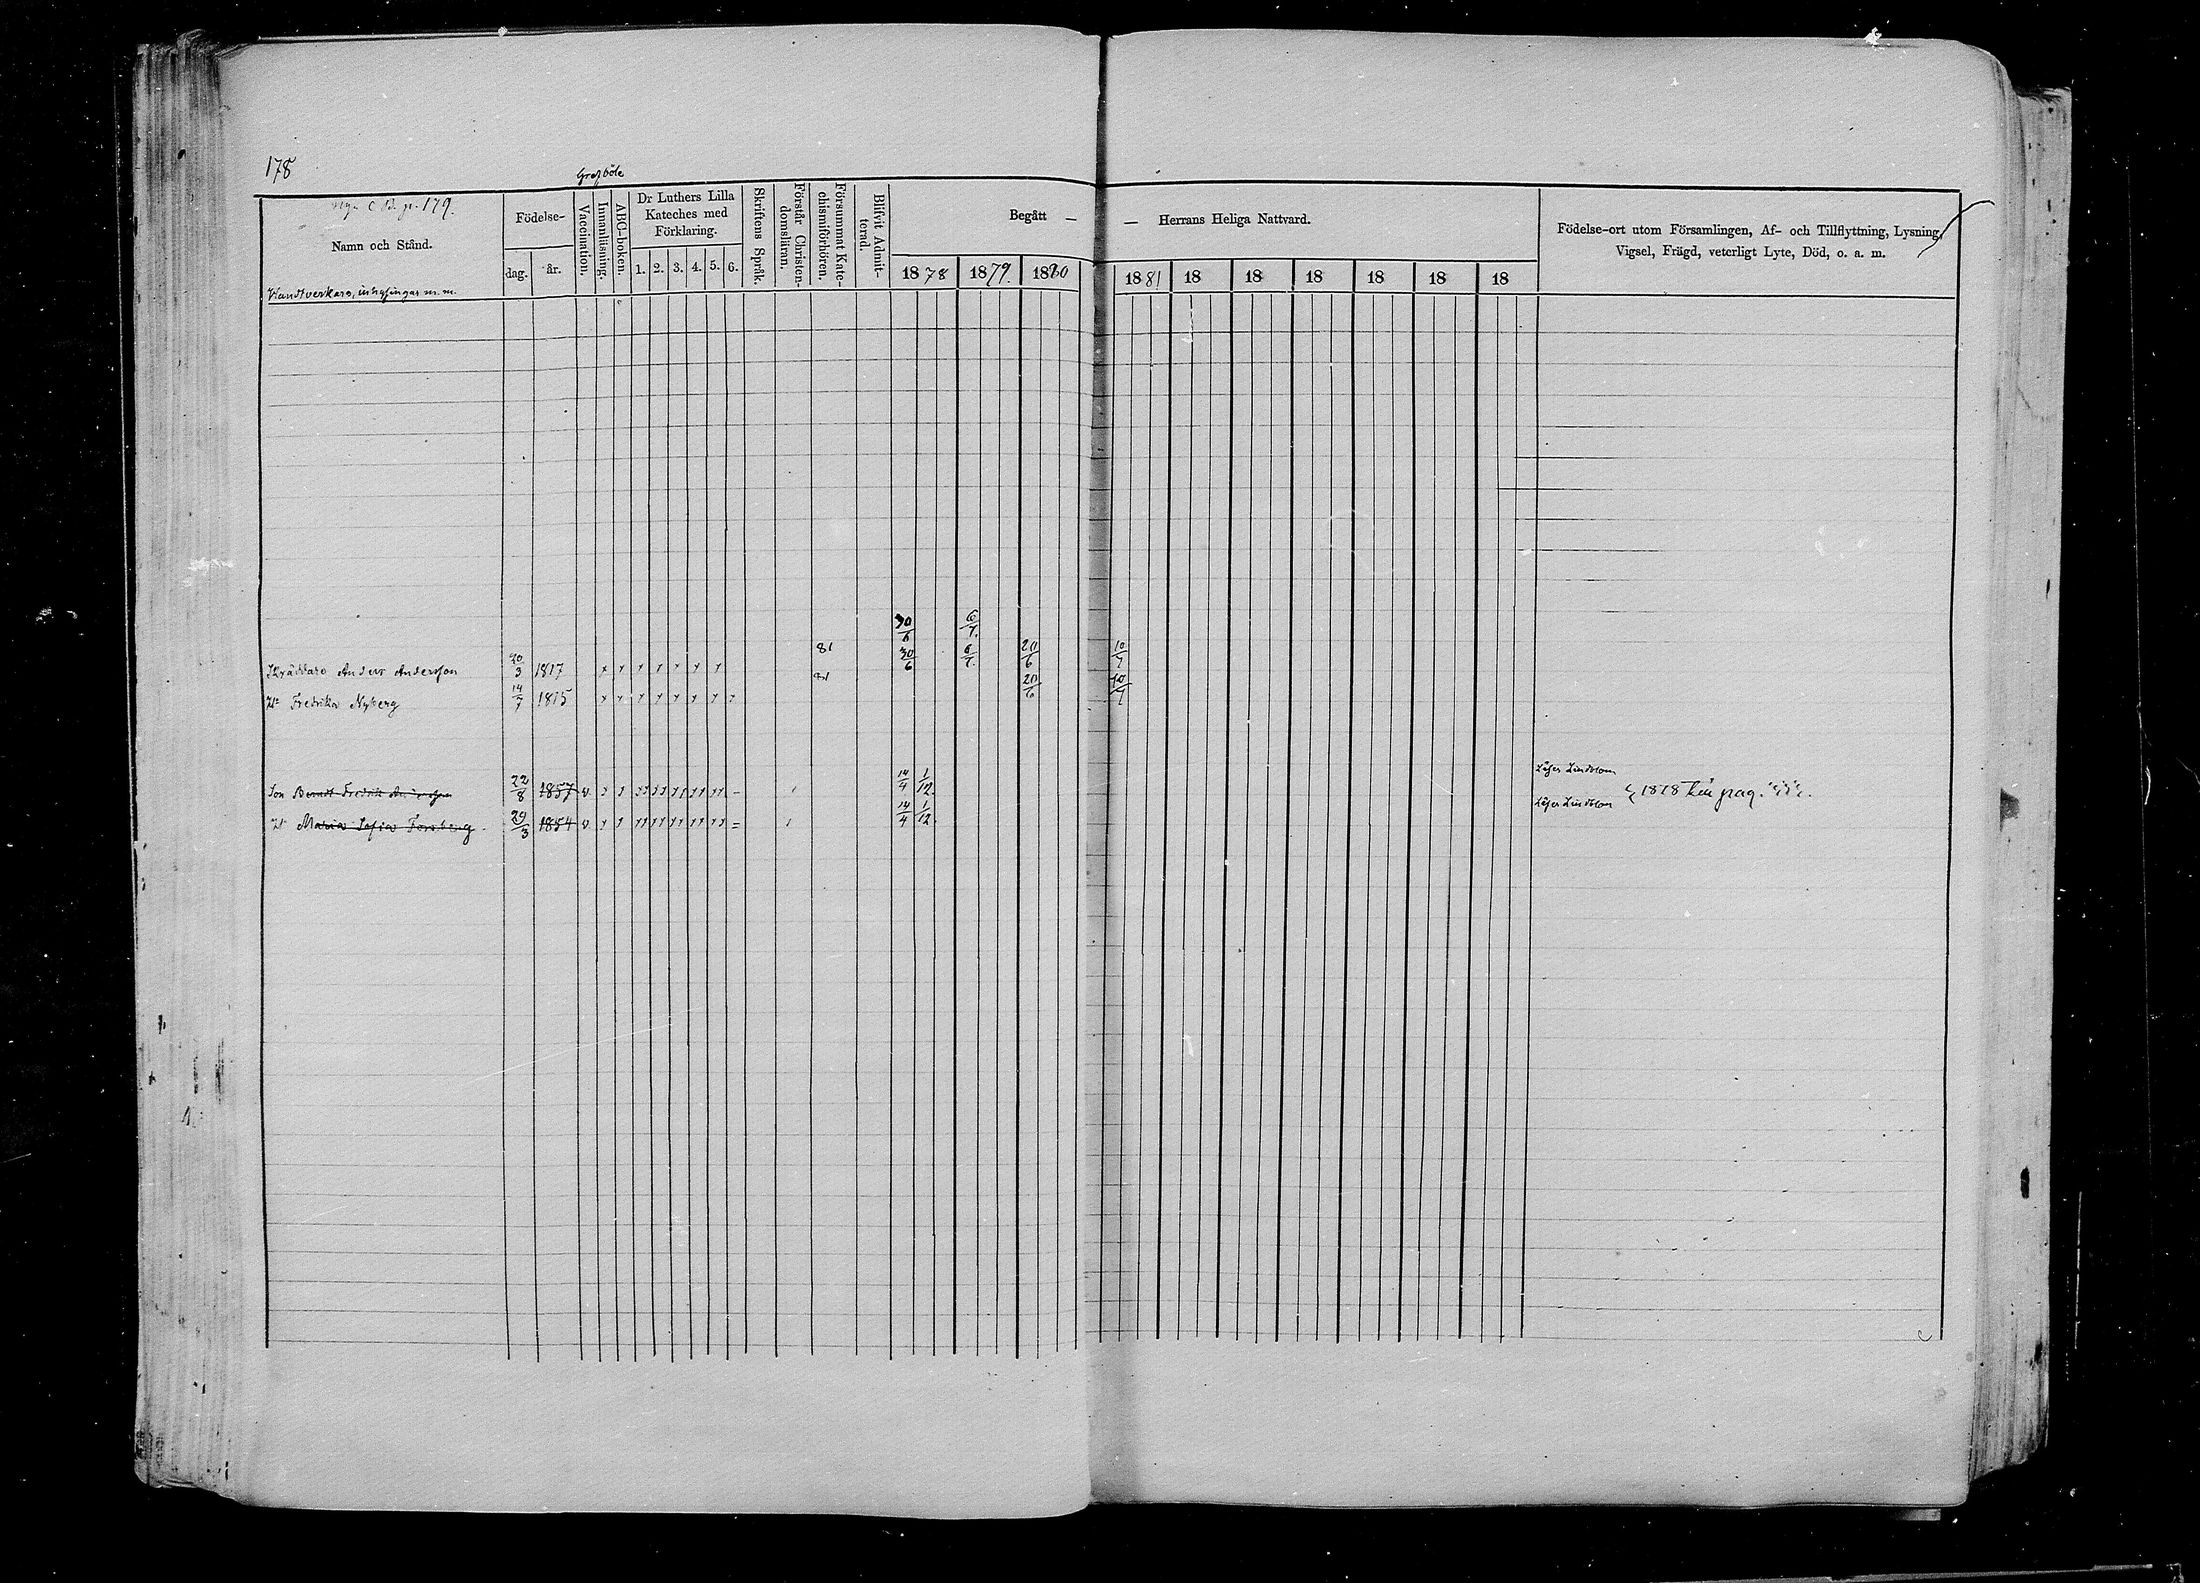 178
Gresböle
Nya C B. p. 179.
Namn och Stånd.
Födelse-
dag.
år.
Vaccination.
Innanläsning.
ABC-boken.
Dr Luthers Lilla
Kateches med
Förklaring.
1. 2. 3. 4. 5. 6.
Skriftens Språk.
Förstår Christen-
domsläran.
Försummat Kate-
chismiförhören.
Blifvit Admit-
terad.
Begått —
— Herrans Heliga Nattvard.
1878 1879. 1880 1881 18 18 18 18 18 18
Födelse-ort utom Församlingen, Af- och Tillflyttning, Lysning,
Vigsel, Frägd, veterligt Lyte, Död, o. a. m.
Handtverkare, inhysingar m. m.
30/6 6/7.
Skräddare Anders Andersson 20/3 1817 81 30/6 6/7. 20/6 10/7
H. Fredrika Nyberg 14/7 1815 81 20/6 10/7
Son Berndt Fredrik Andersson 22/8 1857 v. 14/4 1/12. Läser Lindblom
H. Maria Sofia Forsberg. 29/3 1854 v. 14/4 1/12. Läser Lindblom
1878 pag.